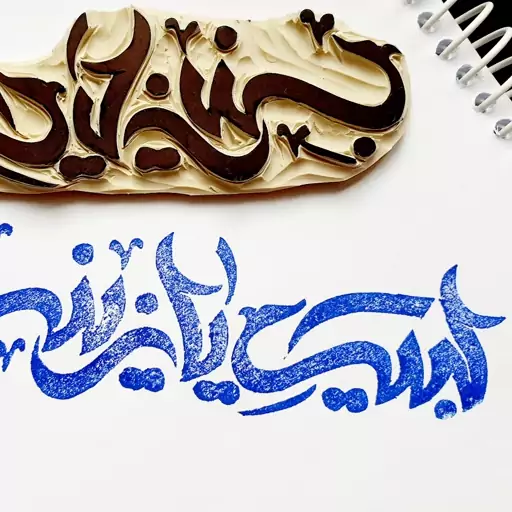 لبيك يا زينب